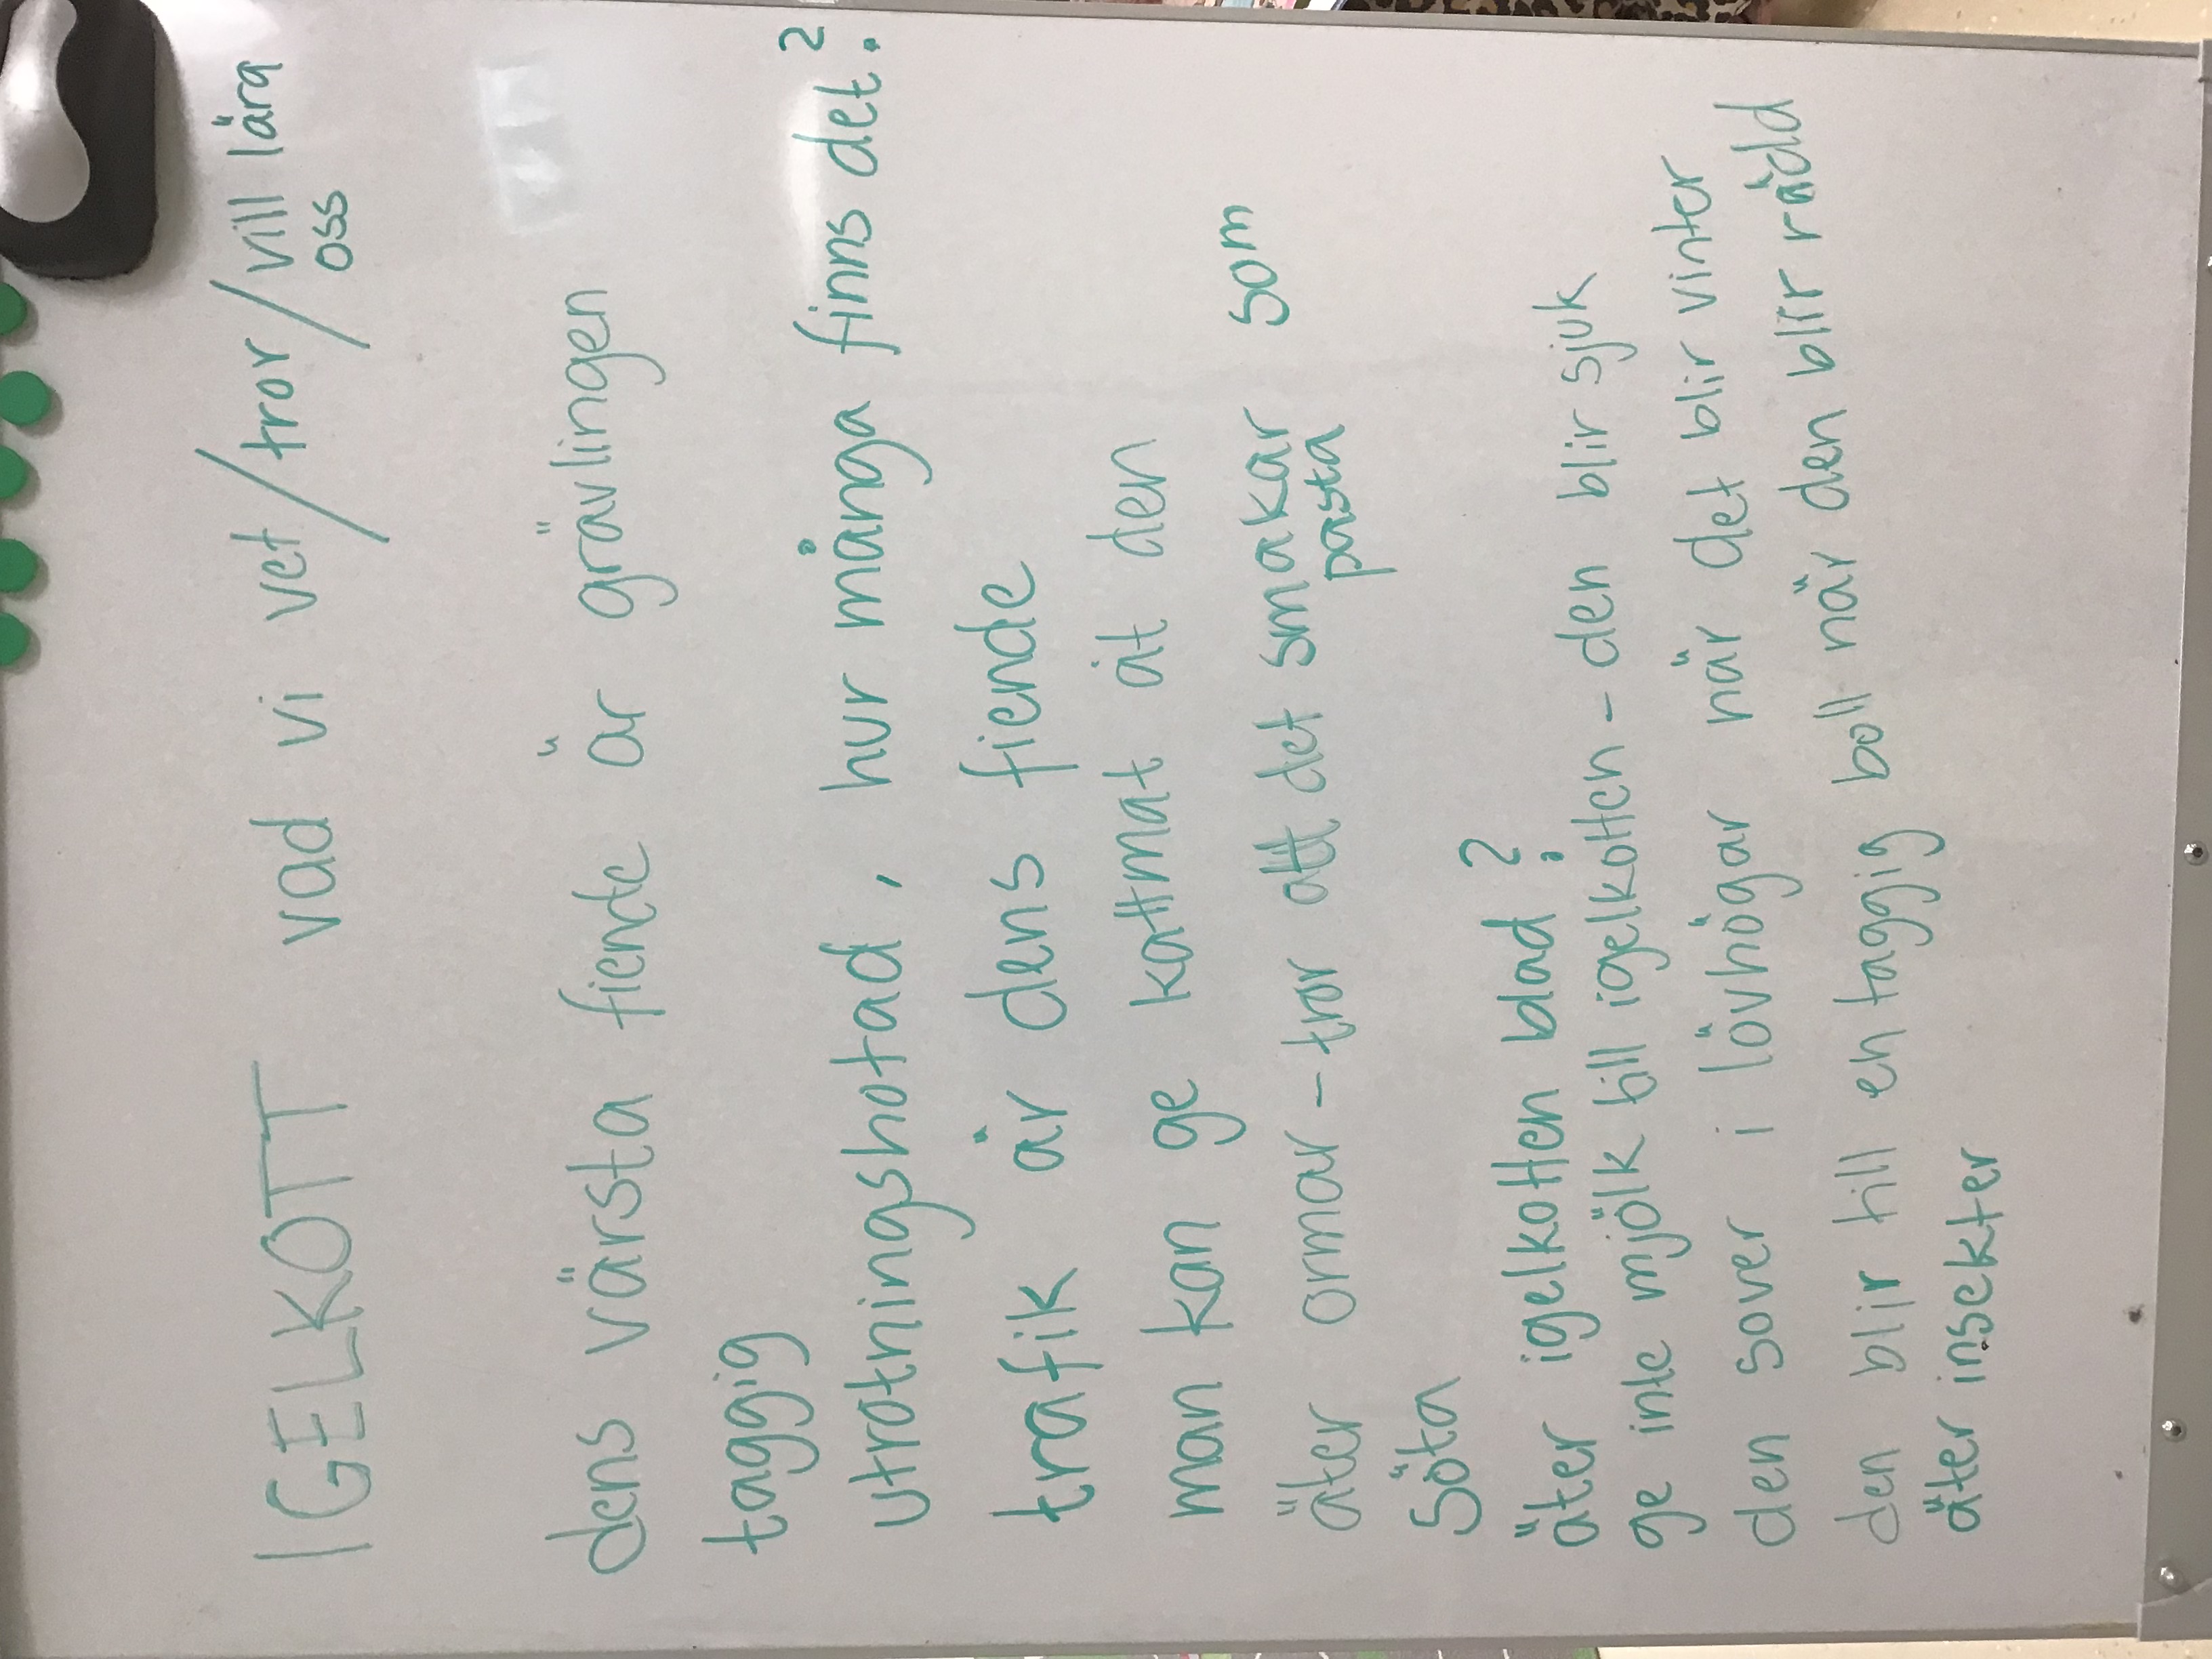 IGELKOTT vad vi vet/tror/vill lära
oss
dens värsta fiende är grävlingen
taggig
utrotningshotad, hur många finns det?
trafik är dens fiende
man kan ge kattmat åt den
äter ormar - tror att det smakar som
pasta
söta
äter igelkotten blad?
ge inte mjölk till igelkotten - den blir sjuk
den sover i lövhögar när det blir vinter
den blir till en taggig boll när den blir rädd
äter insekter